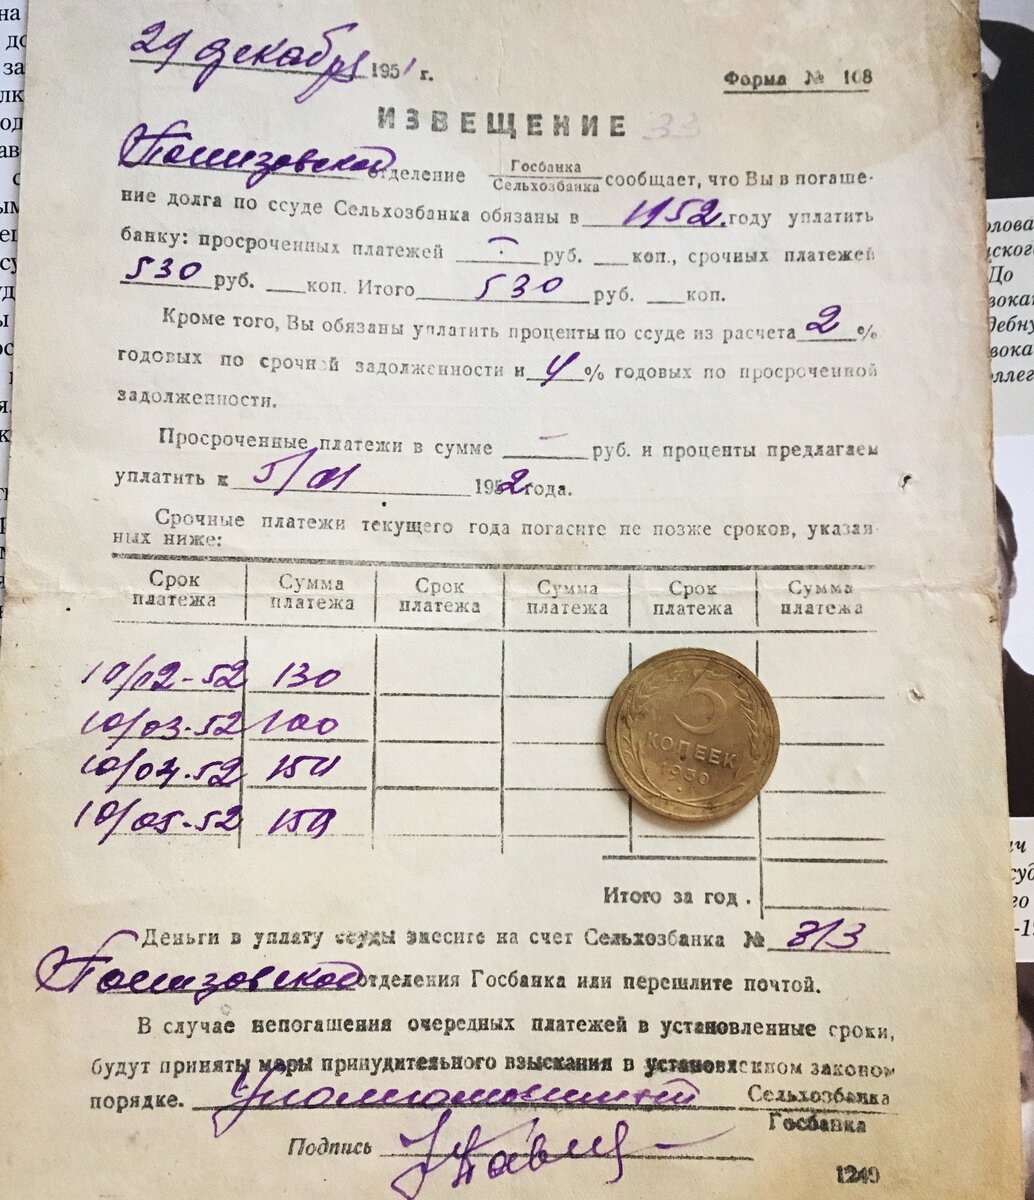 29 декабря 1951 г.
Форма № 108
ИЗВЕЩЕНИЕ 33
отделение Госбанка
Сельхозбанка сообщает, что Вы в погаше-
ние долга по ссуде Сельхозбанка обязаны в 1952 году уплатить
банку: просроченных платежей - руб. коп., срочных платежей
530 руб. коп. Итого 530 руб. коп.
Кроме того, Вы обязаны уплатить проценты по ссуде из расчета 2 %
годовых по срочной задолженности и 4 % годовых по просроченной
задолженности.
Просроченные платежи в сумме - руб. и проценты предлагаем
уплатить к 5/01 1952 года.
Срочные платежи текущего года погасите не позже сроков, указан-
ных ниже:
Срок платежа Сумма платежа Срок платежа Сумма платежа Срок платежа Сумма платежа
10/02-52 130
10/03-52 100
10/04-52 150
10/05-52 150
5
КОПЕЕК
1930
Итого за год .
Деньги в уплату ссуды внесите на счет Сельхозбанка № 813
отделения Госбанка или перешлите почтой.
В случае непогашения очередных платежей в установленные сроки,
будут приняты меры принудительного взыскания в установленном законом
порядке. Сельхозбанка
Госбанка
Подпись
1249